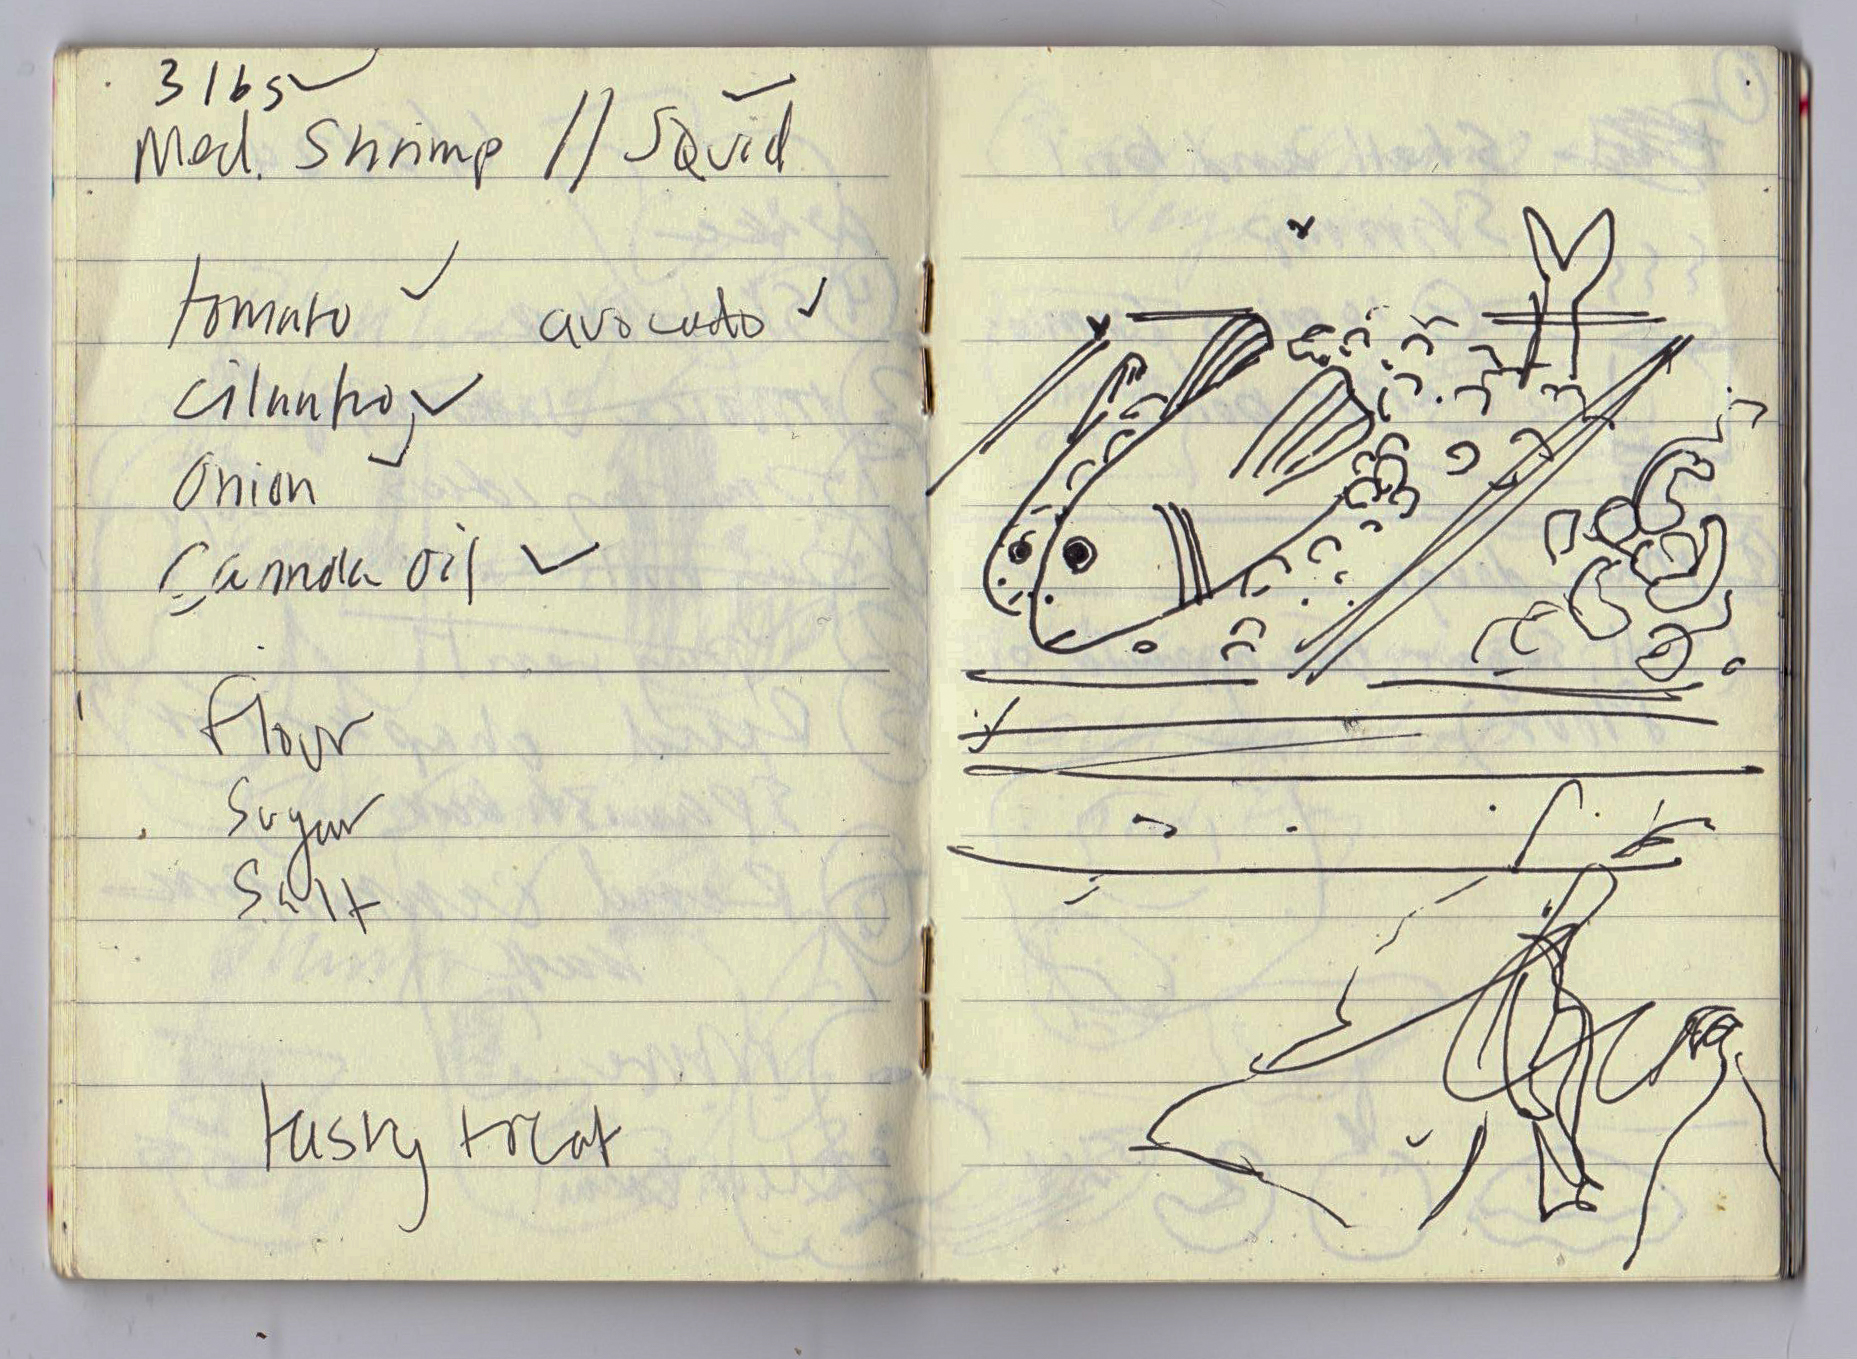 3 lbs
Med. Shrimp // Squid
tomato avocado
cilantro
onion
Canola oil
Flour
Sugar
Salt
tasty treat